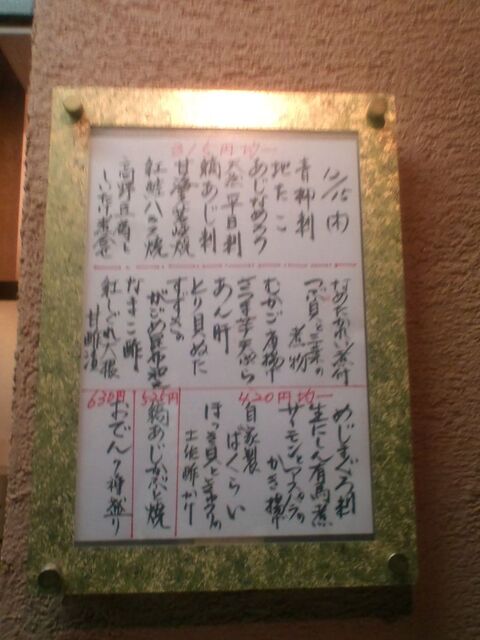 12/15(木)
315円均一
青柳刺
地たこ
あじなめろう
天然平目刺
縞あじ刺
甘鯛若狭焼
紅鮭ハラス焼
高野豆腐と
しいたけ煮含め
なめたかれい煮付
つぶ貝と三菜の
煮物
むかご唐揚
さつま芋天ぷら
あん肝
とり貝ぬた
すずきの
がごめ昆布〆
なまこ酢
紅しぐれ大根
甘酢漬
420円均一
めじまぐろ刺
生にしん有馬煮
サーモンとアスパラの
かき揚
自家製
ばくらい
ほっき貝と
土佐酢かけ
525円
縞あじかぶと焼
630円
おでん7種盛り